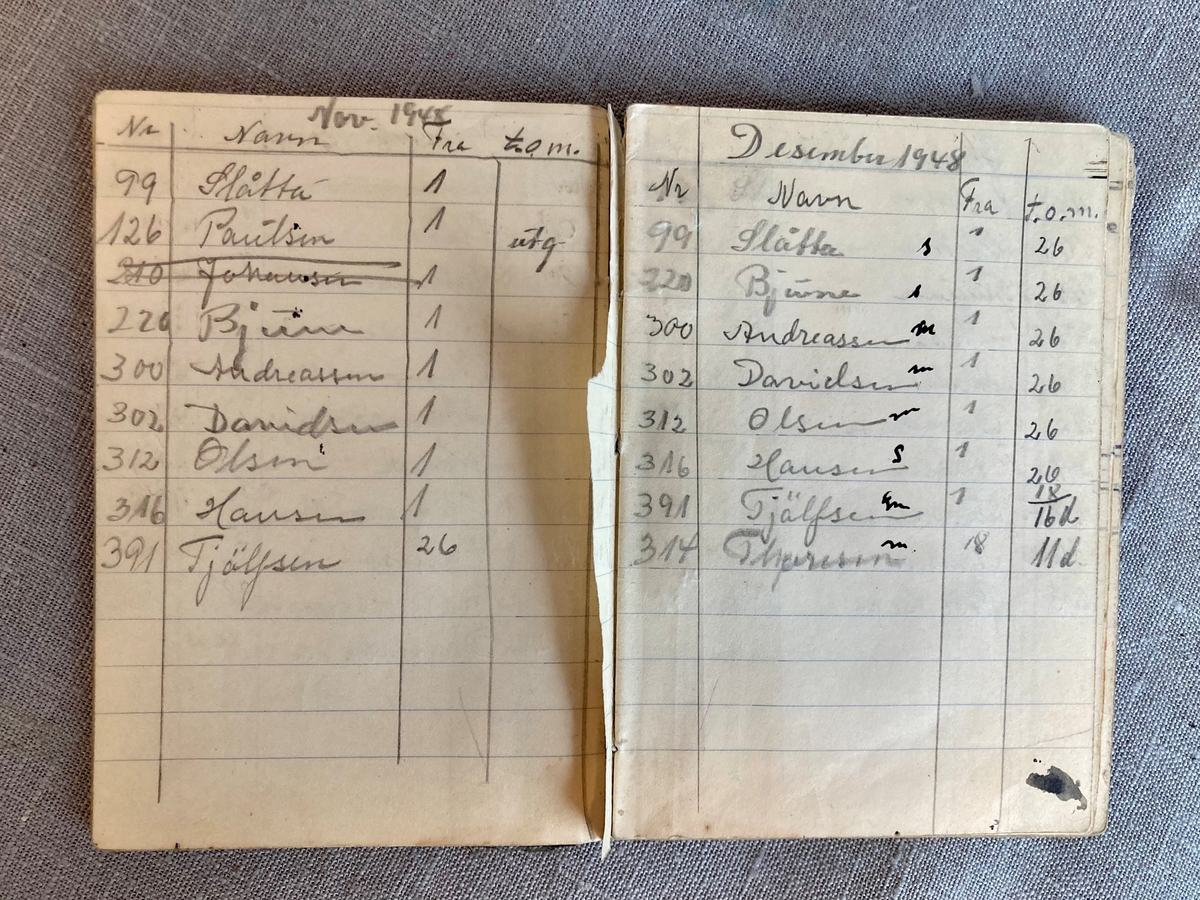 Nov. 1948
Nr Navn Fra t.o.m.
99 Slåtta 1
126 Paulsen 1 utg
210 Johansen 1
220 Bjune 1
300 Andreassen 1
302 Davidsen 1
312 Olsen 1
316 Hansen 1
391 Tjölfsen 26
Desember 1948
Nr Navn Fra t.o.m.
99 Slåtta s 1 26
220 Bjune s 1 26
300 Andreassen m 1 26
302 Davidsen m 1 26
312 Olsen m 1 26
316 Hansen s 1 26
391 Tjölfsen 1 18 16d
314 Thoresen m. 18 11d.